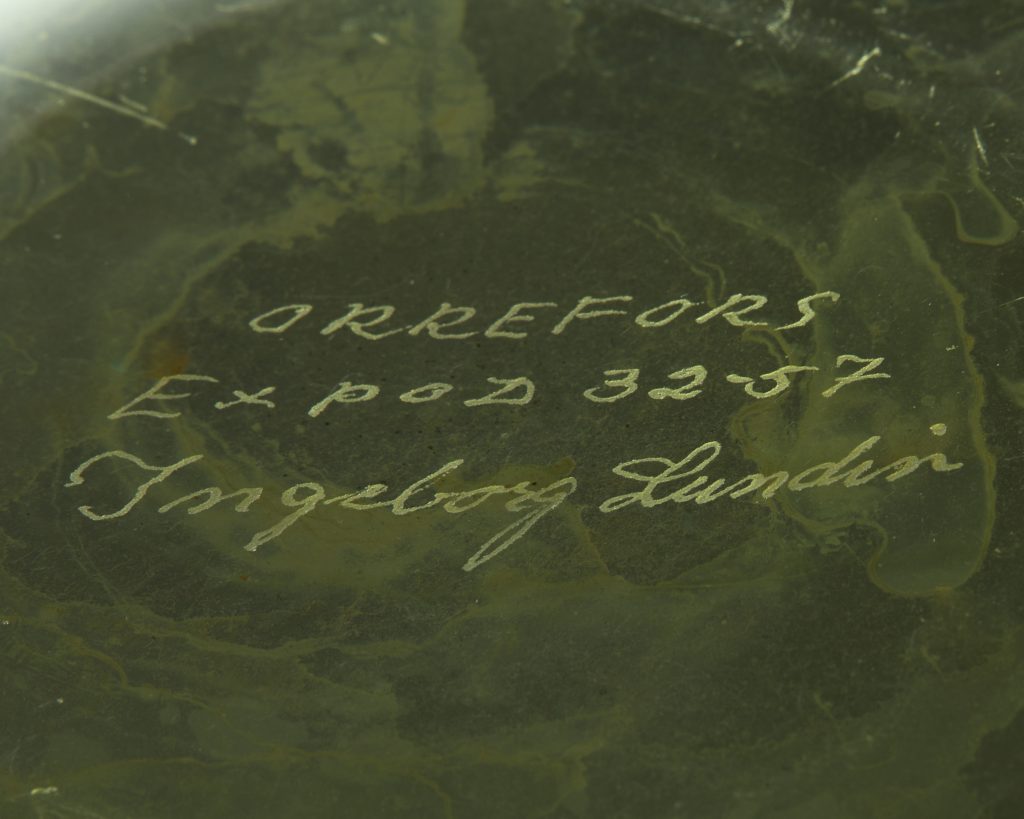 ORREFORS
Expo D 32-57
Ingeborg Lundin